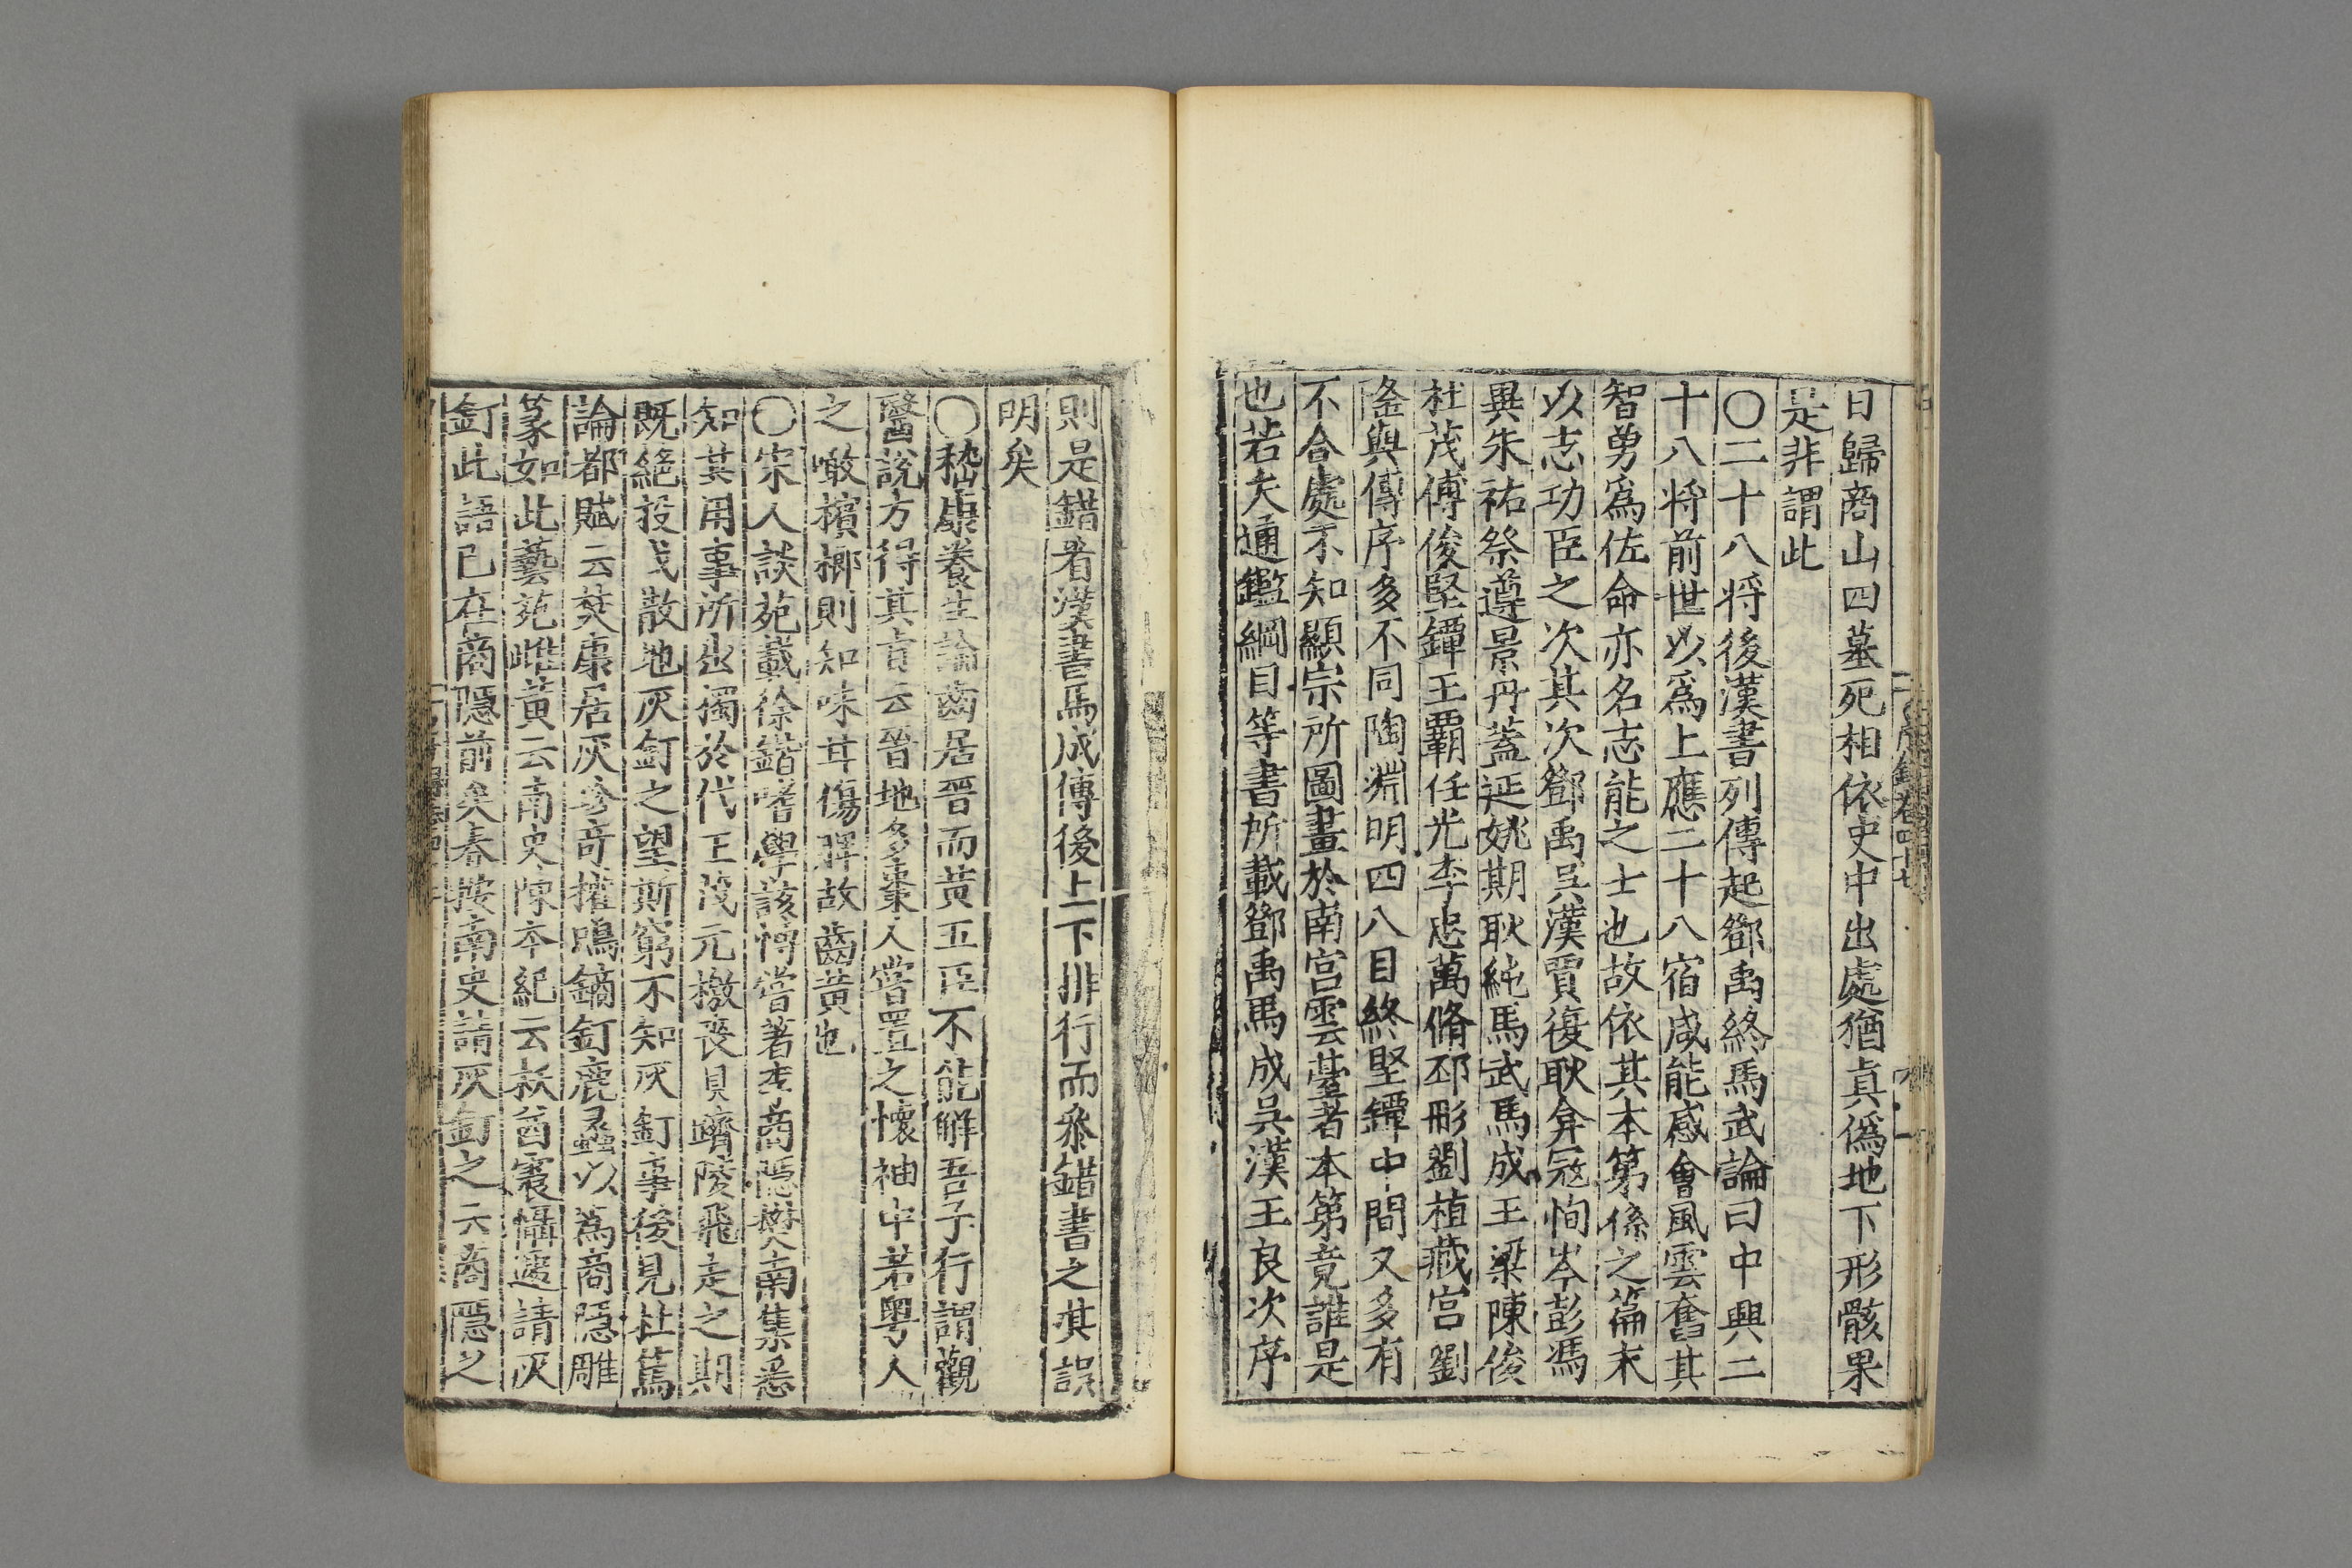 日歸商山四墓死相依史中出處猶真僞地下形骸果
是非謂此
〇二十八将後漢書列傳起鄧禹終馬武論曰中興二
十八将前世以爲上應二十八宿咸能感會風雲奮其
智勇爲佐命亦名志能之士也故依其本第係之篇末
以志功臣之次其次鄧禹吳漢賈復耿弇冦恂岑彭馮
異朱祐祭遵景丹蓋延姚期耿純馬武馬成王梁陳俊
杜茂傅俊堅鐔王覇任光李忠萬脩邳彤劉植臧宮劉
隆與傳序多不同陶淵明四八目終堅鐔中間又多有
不合處不知顯宗所圖畫於南宮雲臺者本第竟誰是
也若夫通鑑綱目等書所載鄧禹馬成吳漢王良次序
則是錯看漢書馬成傳後上下排行而叅錯書之其誤
明矣
〇嵇康養生論齒居晋而黄五臣不能解吾子行謂觀
醫說方得其肯云晉地多棗人嘗置之懷袖中若粤人
之噉檳榔則知味甘傷脾故齒黄也
〇宋人談苑載徐鍇嗜學該博嘗著李商隱樊南集悉
知其用事所出獨於代王茂元檄喪貝躋陵飛走之期
既絕投戈散地灰釘之望斯窮不知灰釘事後見杜篤
論都賦云焚康居灰珍奇摧鳴鏑釘鹿蠡以爲商隱雕
篆如此藝苑雌黄云南史陳本紀云袄酋震懾遽請灰
釘此語已在商隱前矣春按南史請灰釘之云商隱之